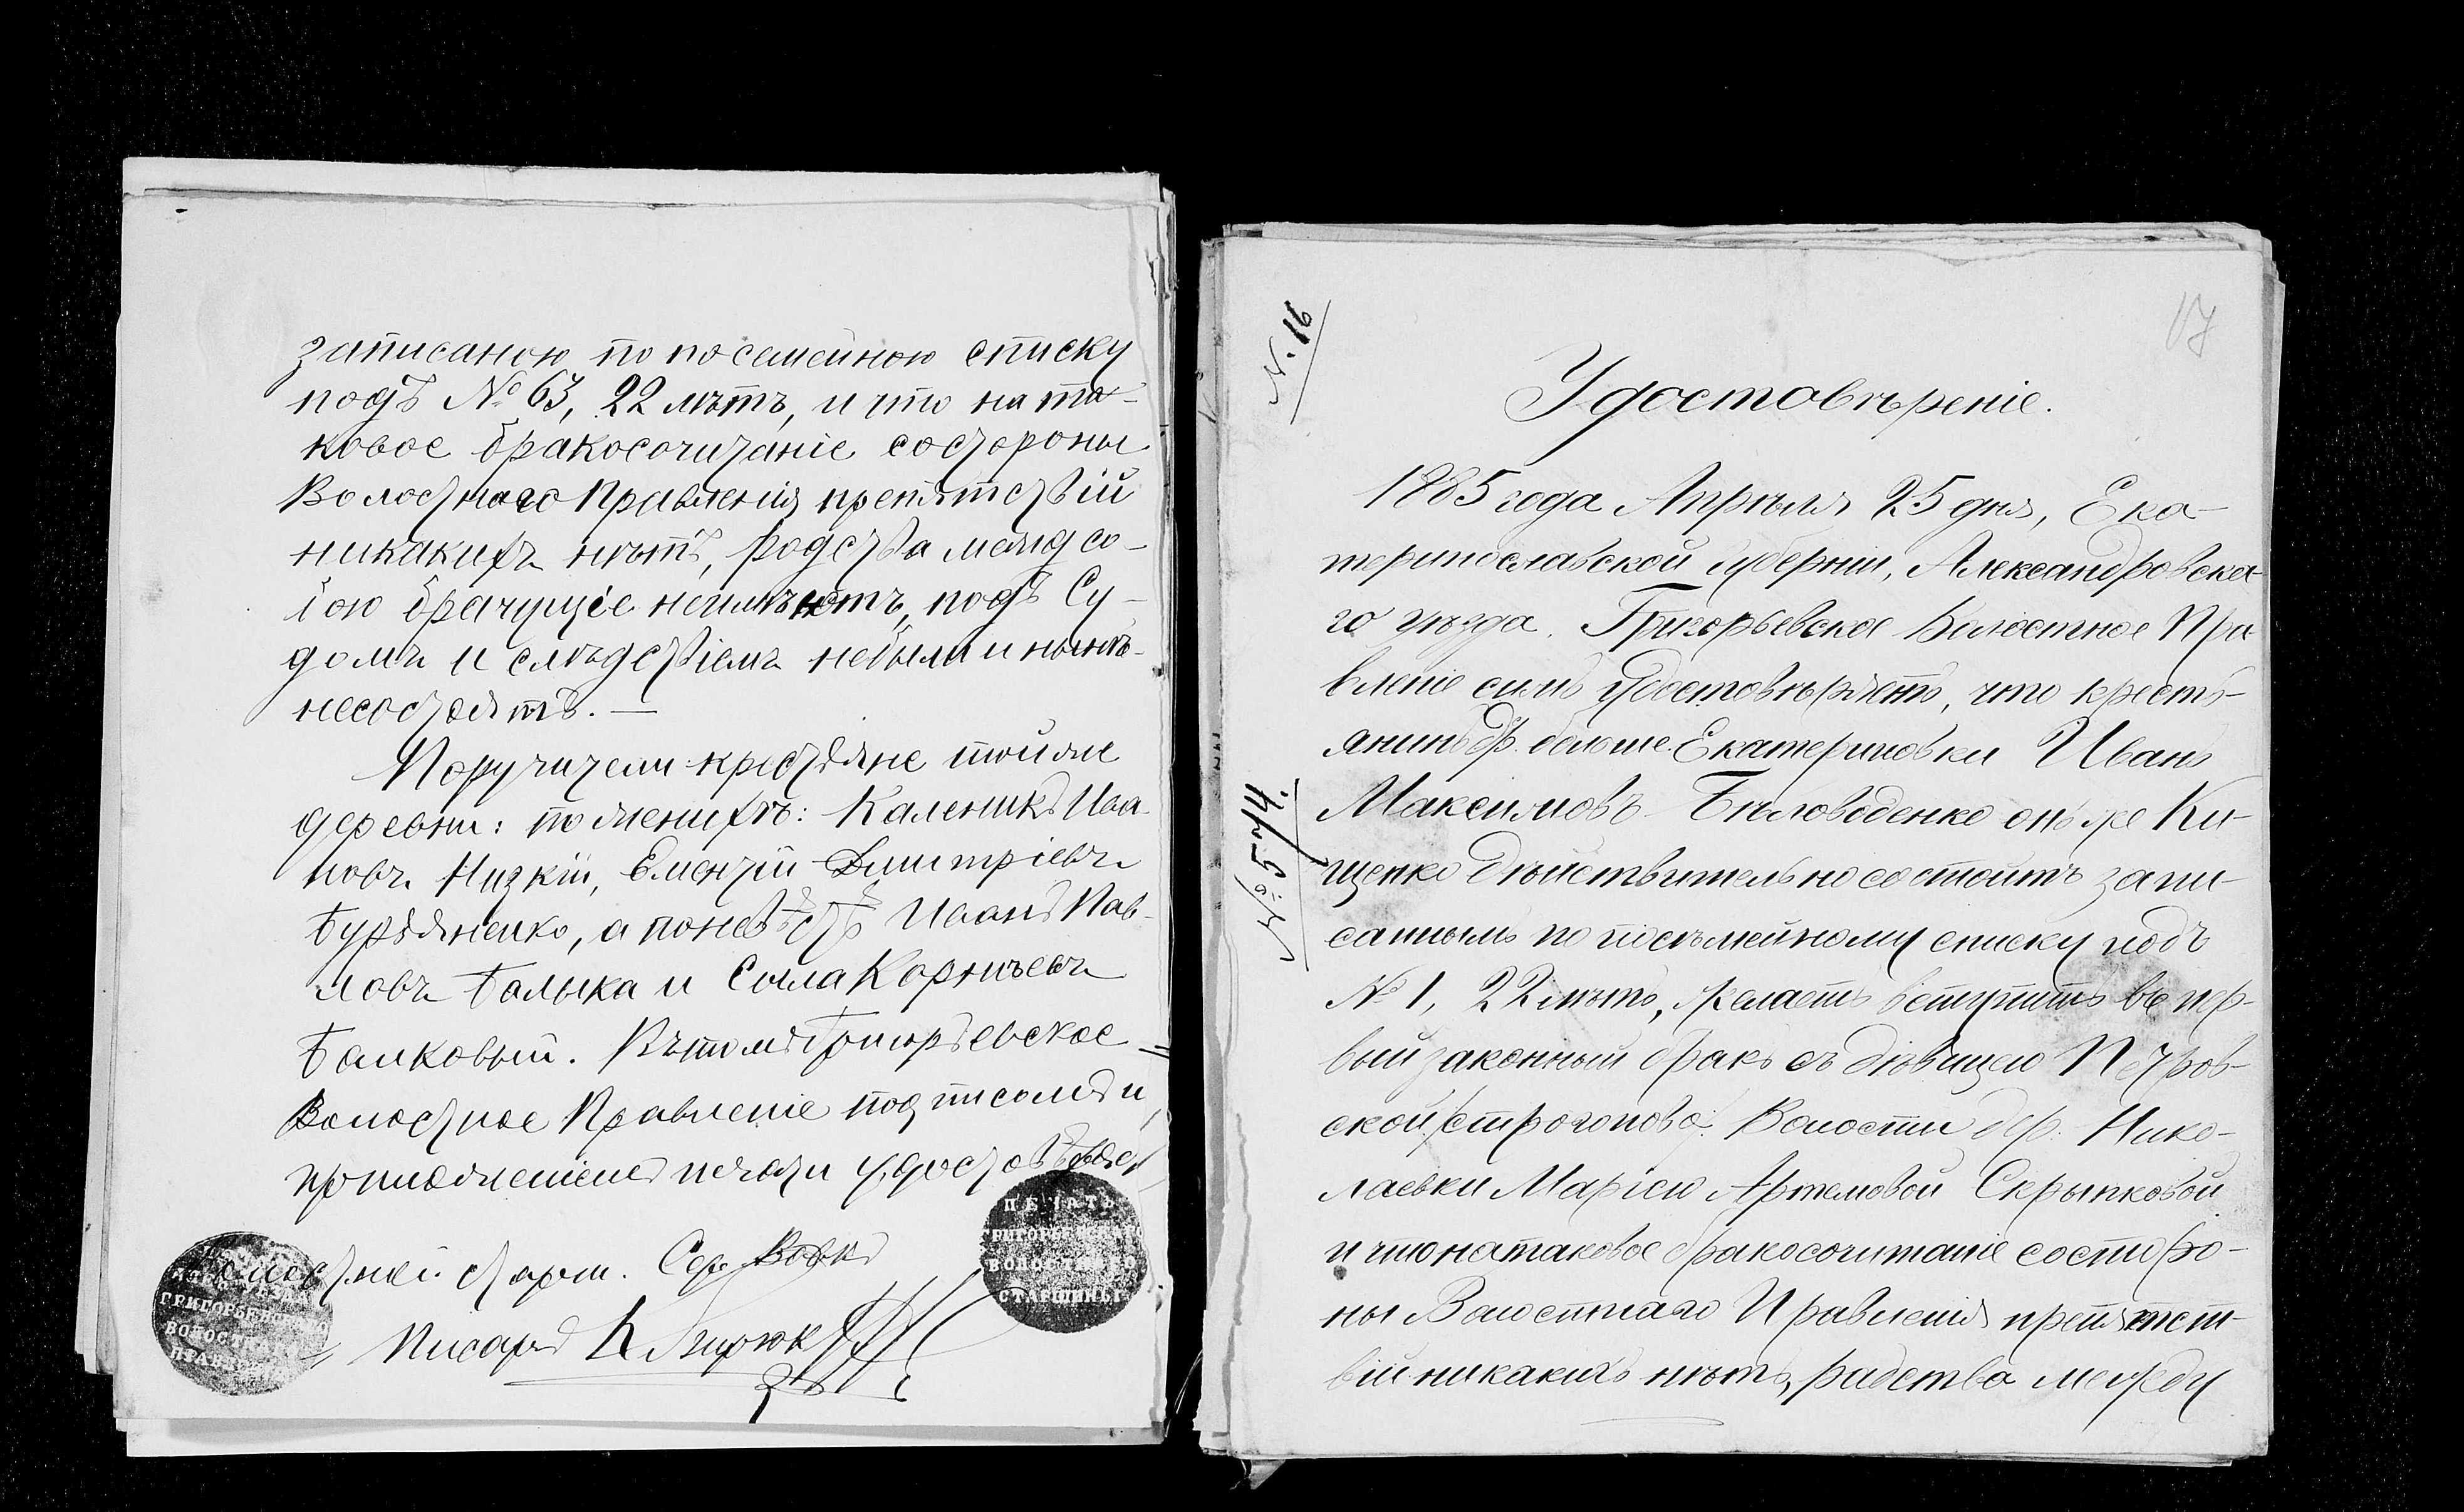 записаною по посемейною списку
подъ № 63, 22 лѣтъ, и что на та-
ковое бракосочитаніе состороны
Волостного Правленія препятствій
никакихъ нѣтъ, родства межд со-
бою брачущіе неимѣютъ, подъ Су-
домъ и слѣдствіемъ небыли и нынѣ-
несостоятъ. —
Поручители крестьяне тойже
деревни: по женихѣ: Каленикъ Ива-
новъ Низкій, Ементій Дмитріевъ
Бурьяненко, а поневѣстѣ Иванъ Пав-
ловъ Балыка и Сыла Корнѣевъ
Балковый. Въ томъ Григорьевское
Волостное Правленіе подписомъ и
приложеніемъ печати удостовѣряе
Волостной старш. Сер. Вовкъ
Писарь К Бирюк
ГРИГОРЬЕВСКАГО
ВОЛОСТНОГО
ПРАВЛЕНІЯ
ПЕЧАТЬ
ГРИГОРЬЕВСКАГО
ВОЛОСТНОГО
СТАРШИНЫ
№ 16
17
Удостовѣреніе.
1885 года Апрѣля 25 дня, Ека-
теринославской губерніи, Александровска-
го уѣзда. Григорьевское Волостное Пра-
вленіе симъ удостовѣряетъ, что кресть-
янинъ др. больше. Екатериновки Иванъ
Максимовъ Бѣловоденко онъ же Ки-
щенко дѣйствительно состоитъ запи-
саннымъ по посѣмейному списку подъ
№ 1, 22 лѣтъ, желаетъ вступить въ пер-
вый законный бракъ съ дѣвицею Петров-
ской /строгоново/ Волости дер. Нико-
лаевки Маріею Артемовой Скрыпковой
и что на таковое бракосочитаніе состоро-
ны Волостнаго Правленія препятст-
вій никакихъ нѣтъ, радства между
№ 5/14.